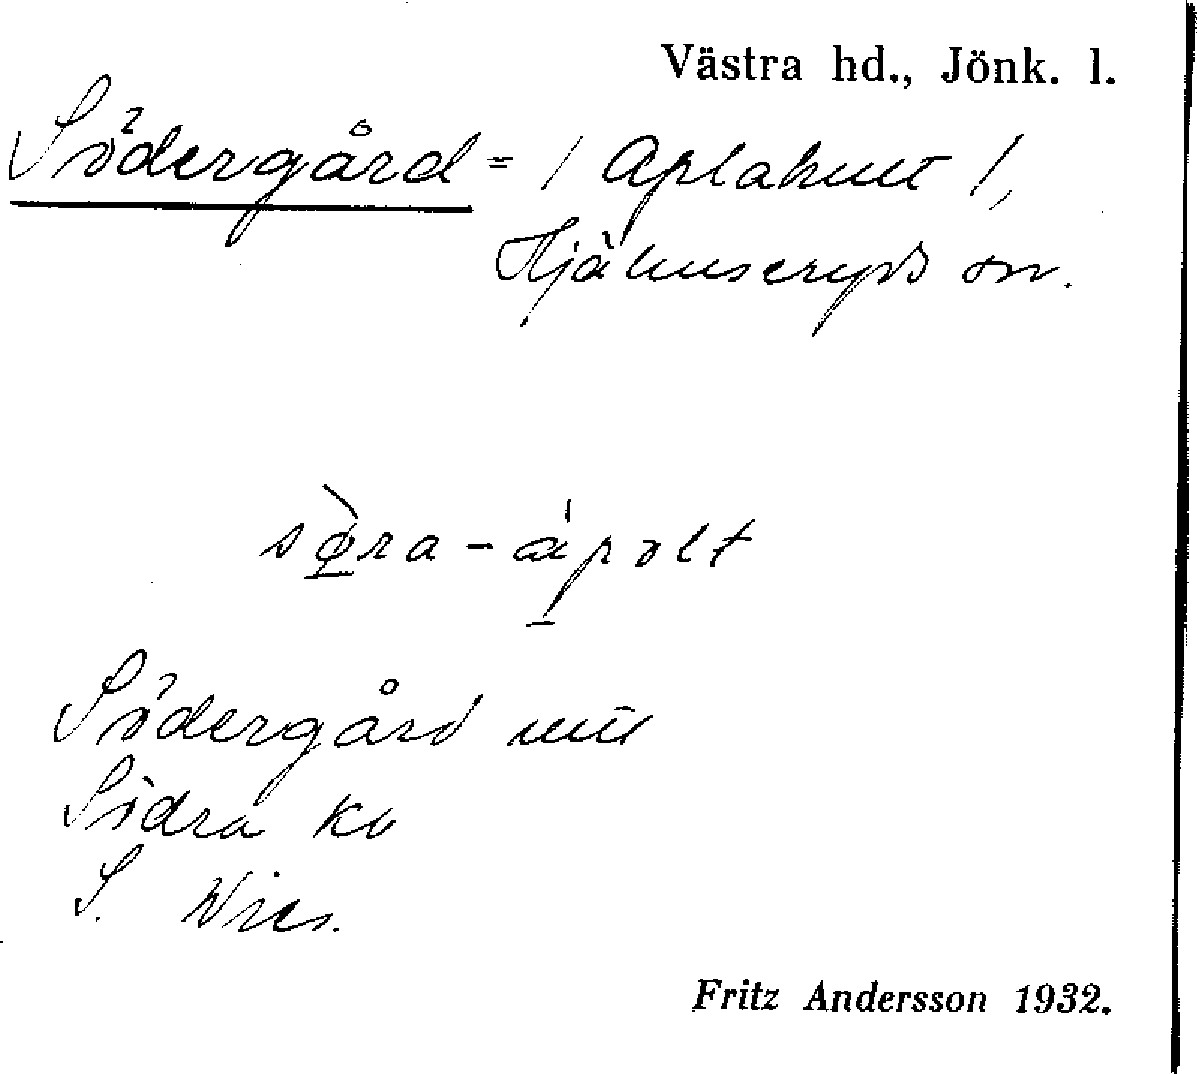 Västra hd., Jönk. l.
Södergård = / Aplahult /,
Hjälmseryds sn.
sø̀ra - ápolt
Södergård
Södra kv
S.
Fritz Andersson 1932.